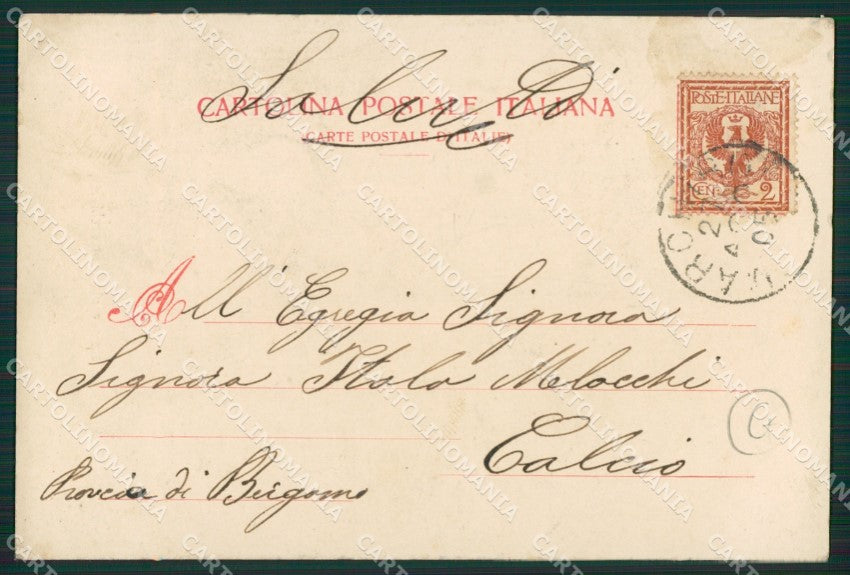 CARTOLINA POSTALE ITALIANA
(CARTE POSTALE D'ITALIE)
POSTE·ITALIANE
CENT. 2
All' Egregia Signora
Signora Itala Melacchi
Calcio
Provcia di Bergamo
CARTOLINOMANIA